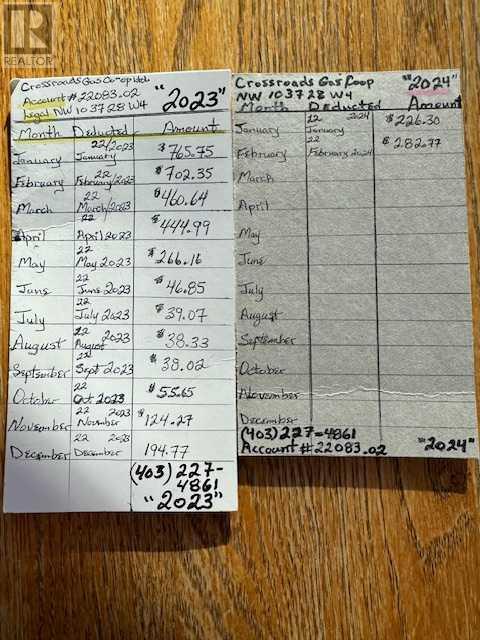 REALTOR
Crossroads Gas Co-op Ltd.
Account # 22083.02
Legal NW 10 37 28 W4
"2023"
Month Deducted Amount
January 22/2023 January $765.75
February 22 February/2023 $702.35
March 22 March/2023 $460.64
April 22 April 2023 $444.99
May 22 May 2023 $266.16
June 22 June 2023 $46.85
July 22 July 2023 $39.07
August 22 2023 August $38.33
September 22 Sept 2023 $38.02
October 22 Oct 2023 $55.65
November 22 2023 November $124.27
December 22 2023 December 194.77
(403) 227-
4861
"2023"
Crossroads Gas Coop
NW 10 37 28 W4
"2024"
Month Deducted Amount
January 22 2024 January $226.30
February 22 February 2024 $282.77
March
April
May
June
July
August
September
October
November
December
(403) 227-4861
Account # 22083.02 "2024"